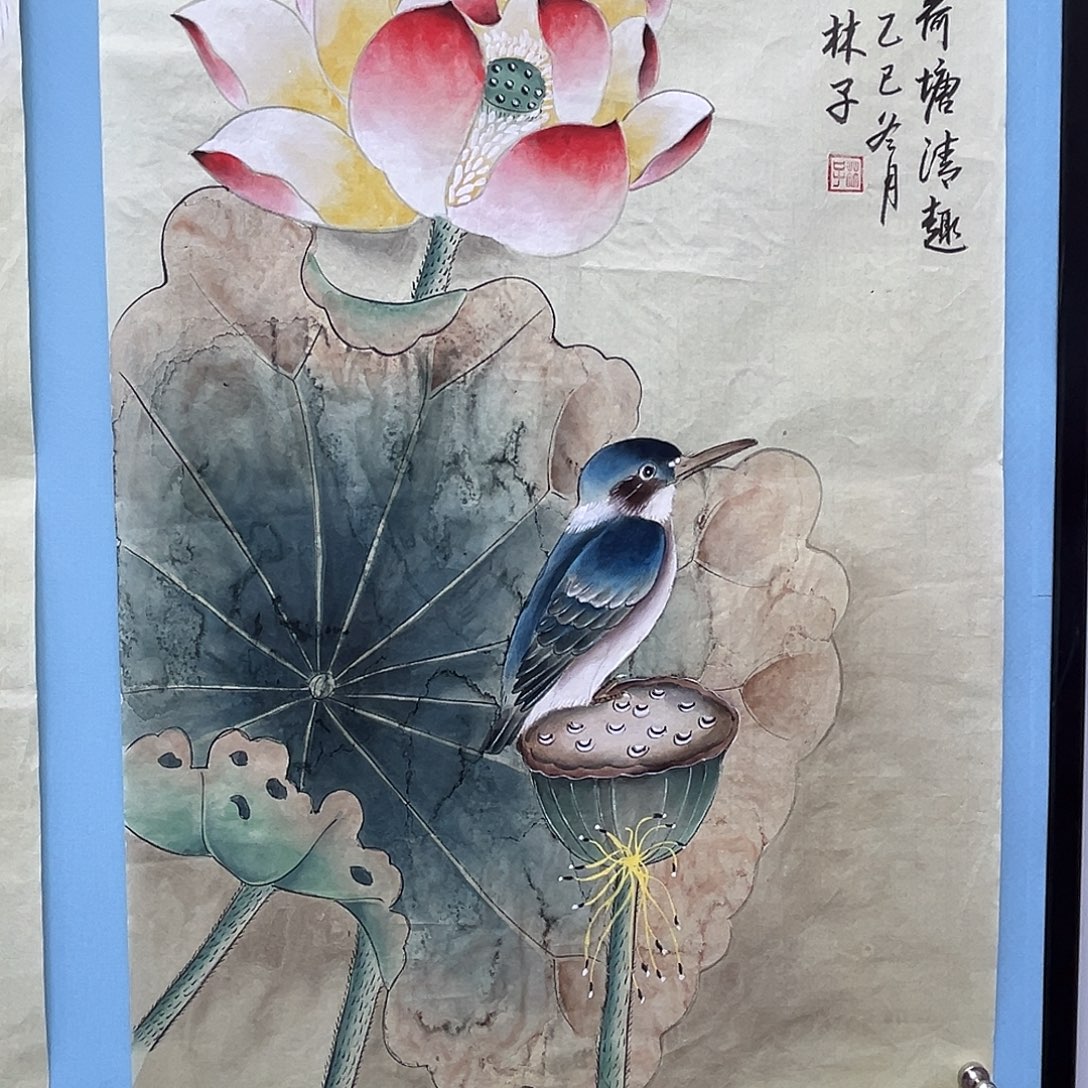 荷塘清趣
乙巳冬月
林子
林子